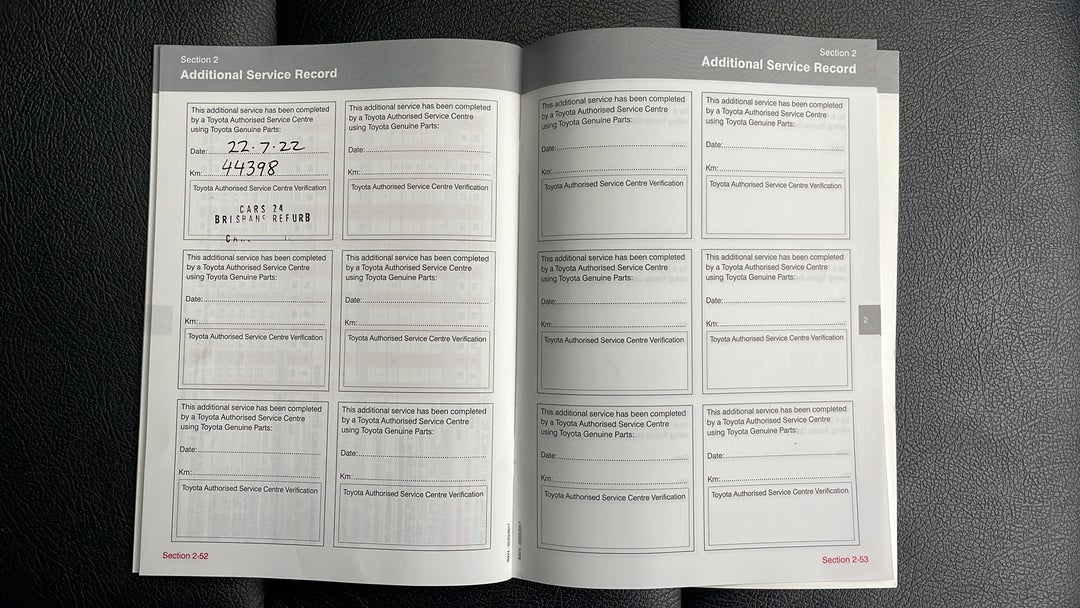 Section 2
Additional Service Record
This additional service has been completed
by a Toyota Authorised Service Centre
using Toyota Genuine Parts:
Date: 22.7.22
Km: 44398
Toyota Authorised Service Centre Verification
CARS 24
BRISBANE REFURB
This additional service has been completed
by a Toyota Authorised Service Centre
using Toyota Genuine Parts:
Date:
Km:
Toyota Authorised Service Centre Verification
This additional service has been completed
by a Toyota Authorised Service Centre
using Toyota Genuine Parts:
Date:
Km:
Toyota Authorised Service Centre Verification
This additional service has been completed
by a Toyota Authorised Service Centre
using Toyota Genuine Parts:
Date:
Km:
Toyota Authorised Service Centre Verification
This additional service has been completed
by a Toyota Authorised Service Centre
using Toyota Genuine Parts:
Date:
Km:
Toyota Authorised Service Centre Verification
This additional service has been completed
by a Toyota Authorised Service Centre
using Toyota Genuine Parts:
Date:
Km:
Toyota Authorised Service Centre Verification
Section 2-52
Section 2
Additional Service Record
This additional service has been completed
by a Toyota Authorised Service Centre
using Toyota Genuine Parts:
Date:
Km:
Toyota Authorised Service Centre Verification
This additional service has been completed
by a Toyota Authorised Service Centre
using Toyota Genuine Parts:
Date:
Km:
Toyota Authorised Service Centre Verification
This additional service has been completed
by a Toyota Authorised Service Centre
using Toyota Genuine Parts:
Date:
Km:
Toyota Authorised Service Centre Verification
This additional service has been completed
by a Toyota Authorised Service Centre
using Toyota Genuine Parts:
Date:
Km:
Toyota Authorised Service Centre Verification
2
This additional service has been completed
by a Toyota Authorised Service Centre
using Toyota Genuine Parts:
Date:
Km:
Toyota Authorised Service Centre Verification
This additional service has been completed
by a Toyota Authorised Service Centre
using Toyota Genuine Parts:
Date:
Km:
Toyota Authorised Service Centre Verification
Section 2-53